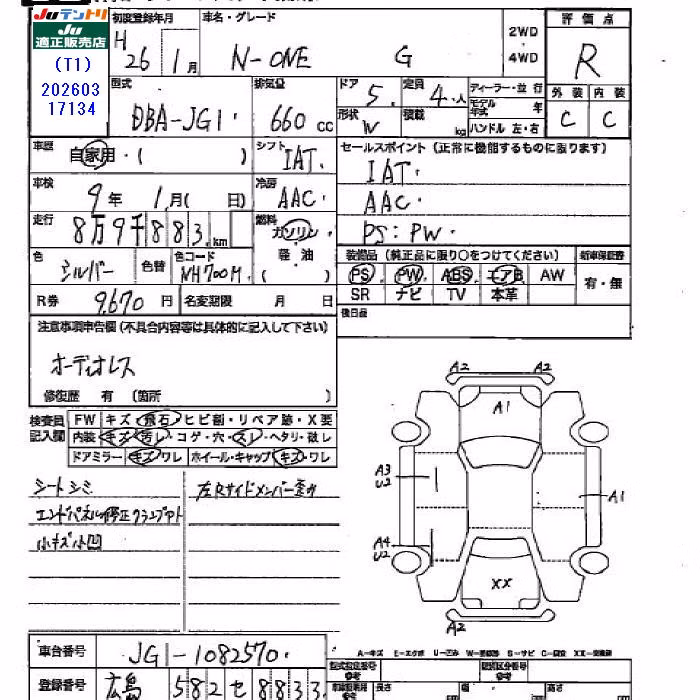 Juテントリ
Ju
適正販売店
(T1)
202603
17134
初度登録年月 車名・グレード 2WD・4WD 評価点
H26 1月 N-ONE G R
型式 排気量 ドア 定員 ディーラー・並行 外装 内装
DBA-JG1 660cc 5 4人 モデル年式 年 C C
形状 W 積載 kg ハンドル 左・右
車歴 自家用・( ) シフト IAT セールスポイント(正常に機能するものに限ります)
IAT
車検 9年 1月( 日) 冷房 AAC AAC
走行 8万9千883km 燃料 ガソリン・軽油( ) PS:PW
色 シルバー 色替 色コード NH700M 装備品(純正品に限り○をつけてください) 新車保証書
PS PW ABS エアB AW 有・無
R券 9,670円 名変期限 月 日 SR ナビ TV 本革
後日品
注意事項申告欄(不具合内容等は具体的に記入して下さい)
オーディオレス
修復歴 有 (箇所 )
検査員記入欄
FW キズ・飛石・ヒビ割・リペア跡・X要
内装 キズ・汚レ・コゲ・穴・スレ・ヘタリ・破レ
ドアミラー キズ・ワレ ホイール・キャップ キズ・ワレ
シートシミ 左Rサイドメンバー歪み
エンドパネル修正クランプアト
小キズ小凹
A2 A2
A1
A3
U2
A1
A4
U2
XX
A2
A-キズ E-エクボ U-凹み W-要修理 S-サビ C-腐食 XX-交換済
車台番号 JG1-1082570
登録番号 広島 582 セ 8833
型式指定番号 参考 類別区分番号 参考
長さ 幅 高さ